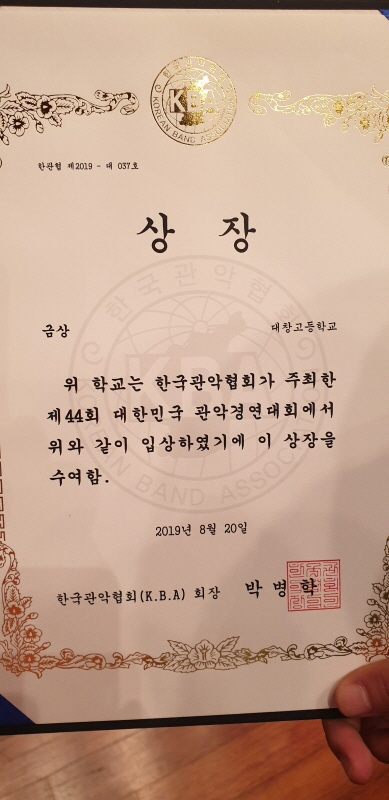 한국관악협회
KBA
KOREAN BAND ASSOCIATION
한관협 제2019 - 대 037호
상 장
금상
대창고등학교
위 학교는 한국관악협회가 주최한
제44회 대한민국 관악경연대회에서
위와 같이 입상하였기에 이 상장을
수여함.
2019년 8월 20일
한국관악협회(K.B.A) 회장 박병학